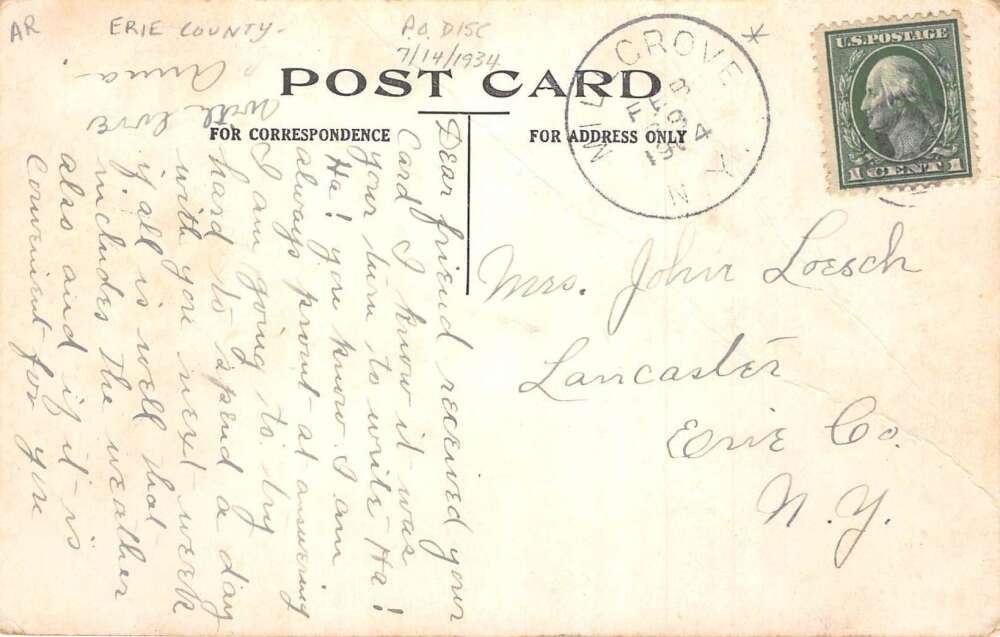 AR
ERIE COUNTY-
P.O. DISC
7/14/1934
POST CARD
FOR CORRESPONDENCE
FOR ADDRESS ONLY
MILL GROVE
FEB
N Y
U.S. POSTAGE
1 CENT 1
Mrs. John Loesch
Lancaster
Erie Co.
N. Y.
Dear friend received your
Card I know it was
your turn to write Ha!
Ha! you know I am
always promt at answering
I am going to try
hard to spend a day
with you next week
if all is well that
includes the weather
also and if it is
Convenient for you
with love
Anna.